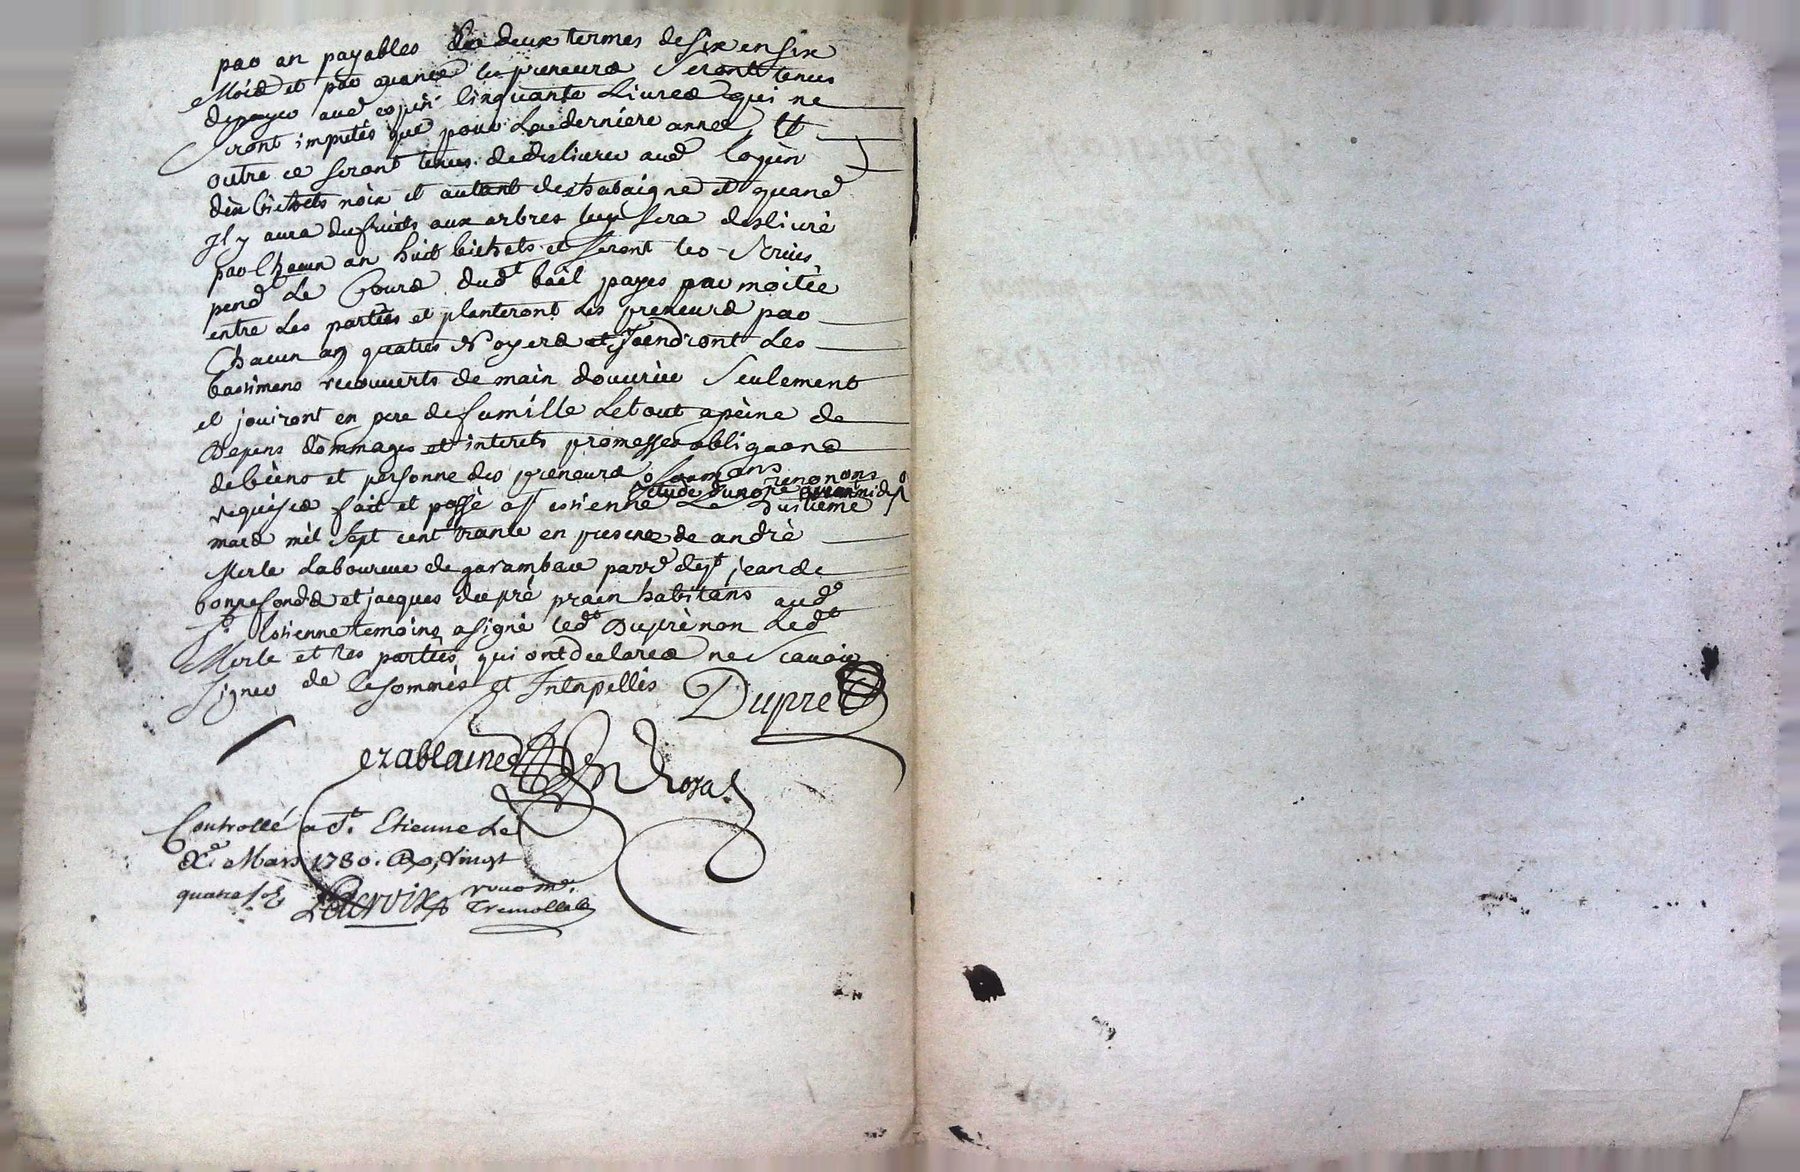 par an payables en deux termes de six en six
Mois et par avance les preneurs seront tenus
de payer aud cohin cinquante Livres qui ne
seront imputés que pour La derniere annee, Et
outre ce seront tenus de deslivrer aud Cohin
dix bichets noix et autant de chataigne et quand
Il y aura du fruits aux arbres luy sera deslivré
par Chacun an huit bichets et seront les
pend Le Cours dud bail payes par moitié
entre Les parties et planteront Les preneurs par
Chacun an quatres Noyers et tiendront Les
bastimens recouverts de main douvrier Seulement
et jouiront en pere de famille Le tout apeine de
Depens dommages et interets promesses obligaons
de biens et personne des preneurs soumans renonons
requises fait et passé a St estienne Le huitieme
mars mil sept cent trante en presence de andré
Merle Laboureur de parr de St jean de
bonnefonds et jacques dupré habitans aud
St Estienne temoins a signé led Dupré non Led
Merle et Les parties qui ont declarés ne scavoir
signer de ce sommés et Interpellés Dupré
Controllé a St. Etienne Le
Xe Mars 1730. R. vingt
quatre sols
Delacroix Tremollet